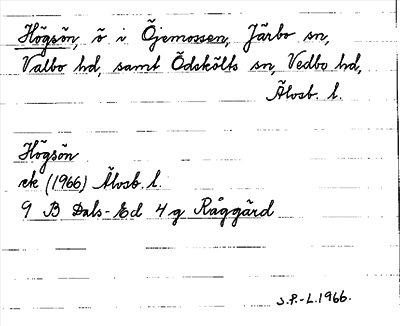 Högsön, ö i Öjemossen, Järbo sn,
Valbo hd, samt Ödskölts sn, Vedbo hd,
Älvsb. l.
Högsön
ek (1966) Älvsb. l.
9 B Dals-Ed 4 g Råggärd
J.P.-L. 1966.